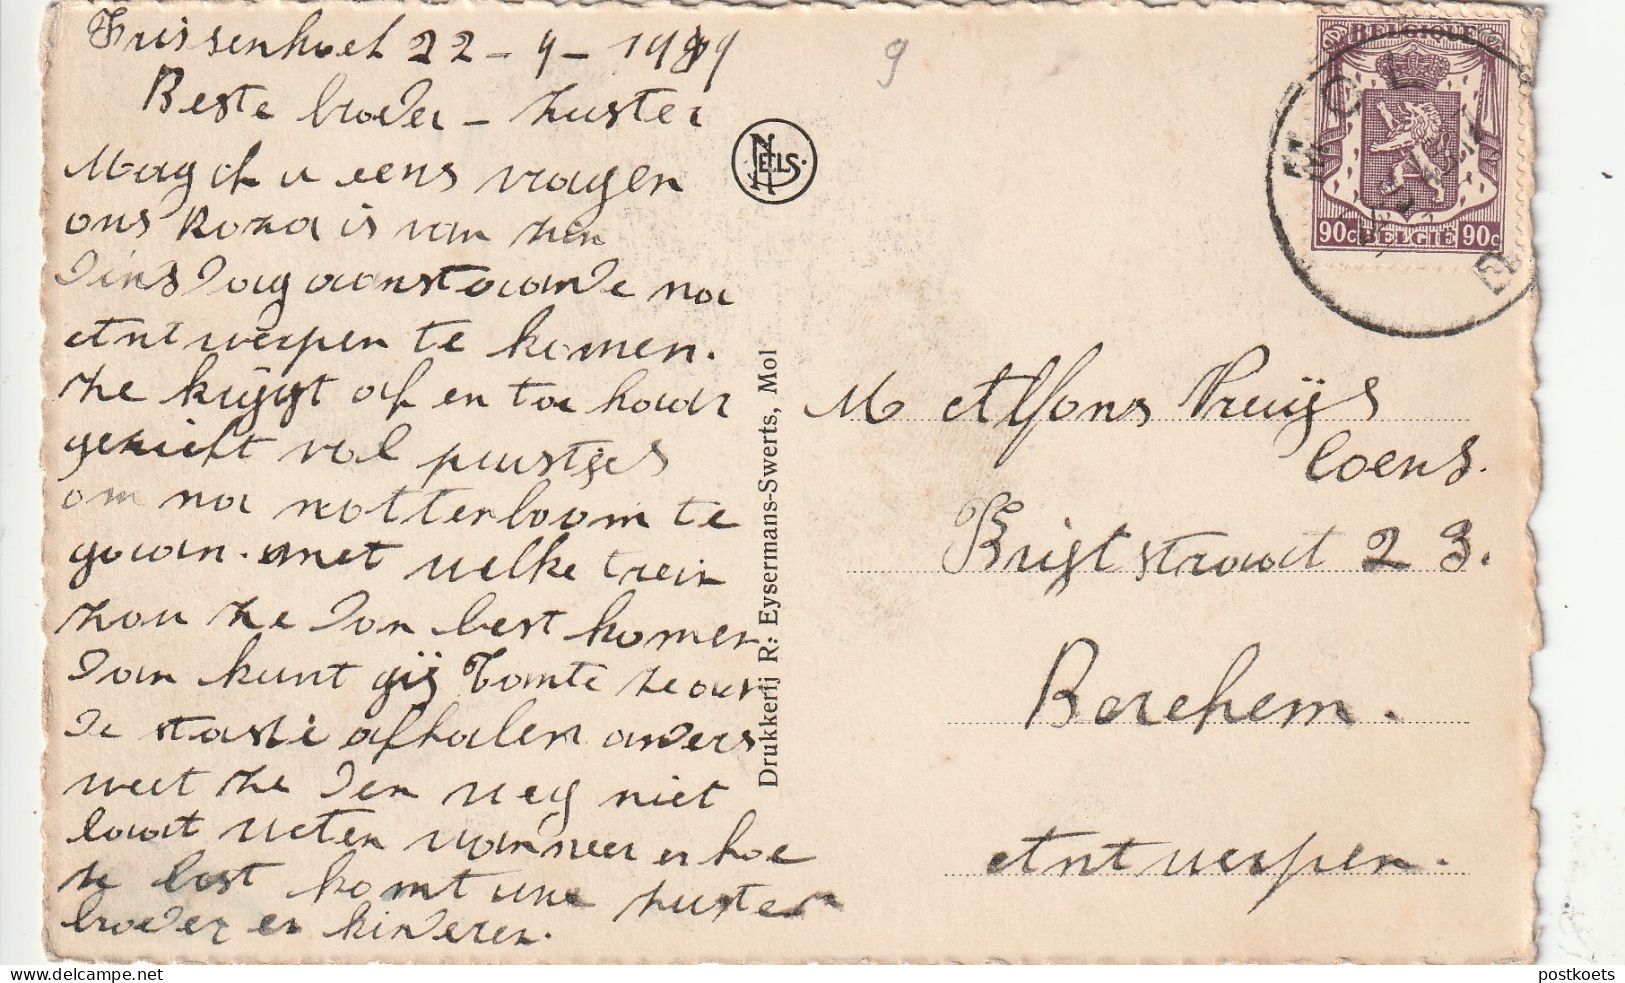 22 - 9 - 1949
9
Beste broeder - zuster
Mag ik u eens vragen
ons Roza is van zin
dinsdag aanstaande na
Antwerpen te komen.
ze krijgt af en toe haar
gezicht vol puistjes
om na notterboom te
gaan. met welke trein
zou ze dan best komen
dan kunt gij Tante ze aan
de statie afhalen anders
weet ze den weg niet
laat weten wanneer en hoe
ze best komt uwe zuster
broeder en kinderen.
NELS.
Drukkerij R. Eysermans-Swerts, Mol
BELGIQUE
90c BELGIE 90c
MOL
M Alfons Pruijs
Coens.
Brijtstraat 23.
Berchem.
Antwerpen.
postkoets